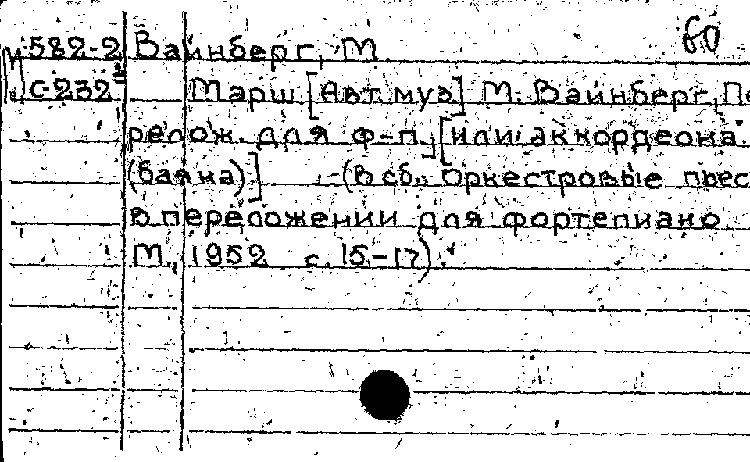 60
М 582-2 Вайнберг, М
С-232² Марш [Авт. муз] М. Вайнберг, Пе
релож. для ф-п., [или аккордеона.
(баяна)] - (В сб., Оркестровые пьес
в переложении для фортепиано
М., 1952 с. 15-17).